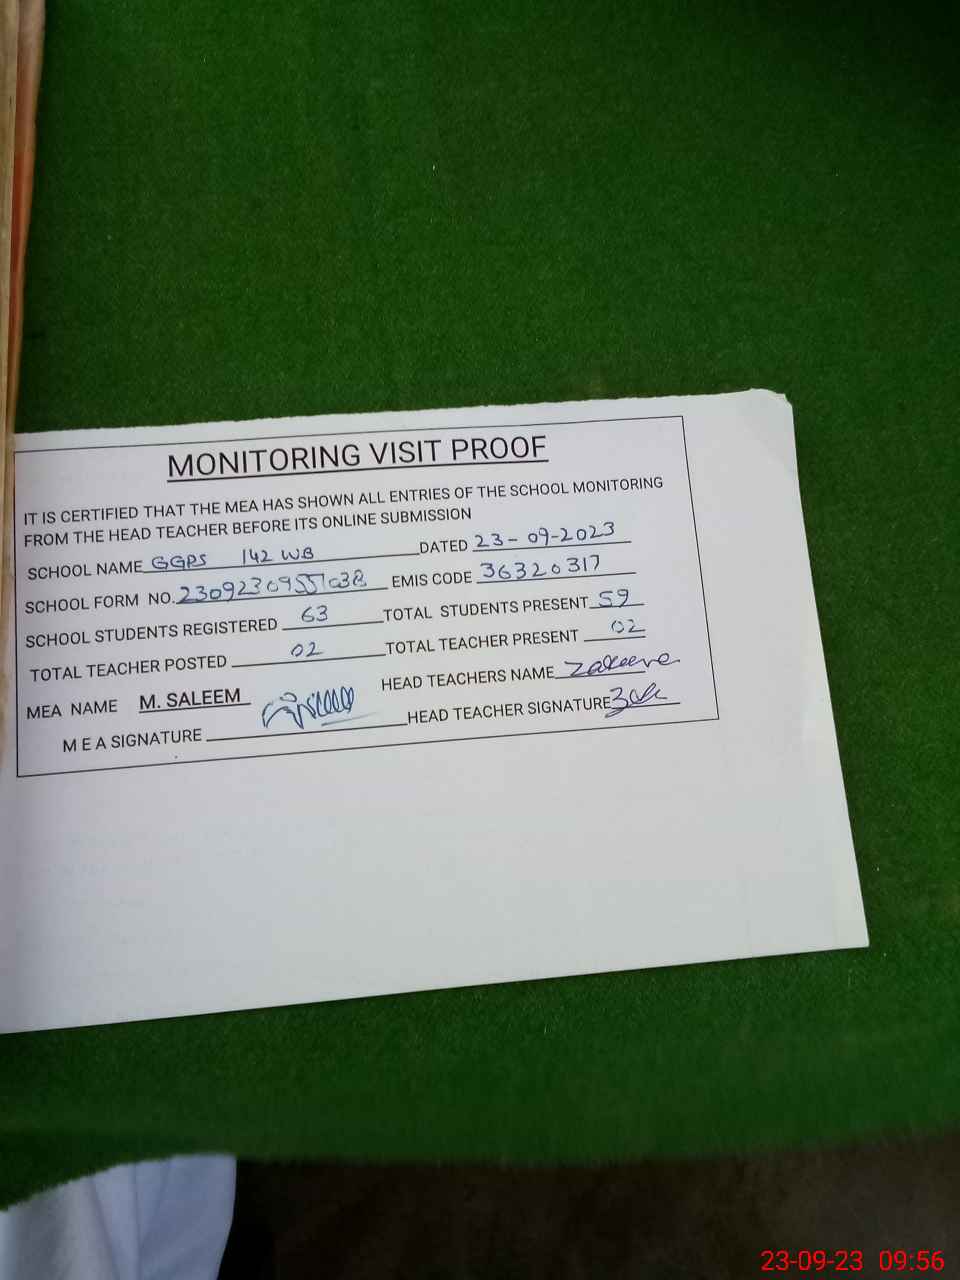 MONITORING VISIT PROOF
IT IS CERTIFIED THAT THE MEA HAS SHOWN ALL ENTRIES OF THE SCHOOL MONITORING
FROM THE HEAD TEACHER BEFORE ITS ONLINE SUBMISSION
SCHOOL NAME GGPS 142 WB DATED 23-09-2023
SCHOOL FORM NO. EMIS CODE 36320317
SCHOOL STUDENTS REGISTERED 63 TOTAL STUDENTS PRESENT 59
TOTAL TEACHER POSTED 02 TOTAL TEACHER PRESENT 02
MEA NAME M. SALEEM HEAD TEACHERS NAME
M E A SIGNATURE HEAD TEACHER SIGNATURE
23-09-23 09:56